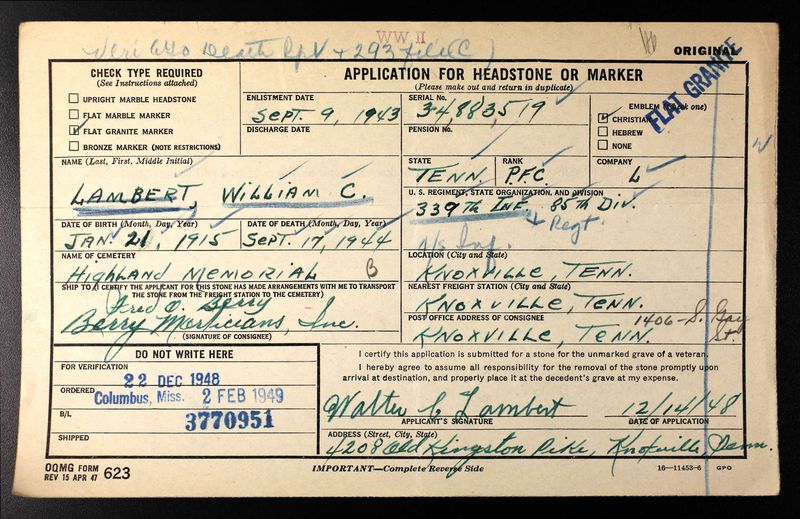 WW II
Death Rpt + 293 file
ORIGINAL
CHECK TYPE REQUIRED
(See Instructions attached)
UPRIGHT MARBLE HEADSTONE
FLAT MARBLE MARKER
FLAT GRANITE MARKER
BRONZE MARKER (NOTE RESTRICTIONS)
APPLICATION FOR HEADSTONE OR MARKER
(Please make out and return in duplicate)
ENLISTMENT DATE
SEPT. 9, 1943
DISCHARGE DATE
SERIAL No.
34883519
PENSION No.
EMBLEM (Check one)
CHRISTIAN
HEBREW
NONE
FLAT GRANITE
NAME (Last, First, Middle Initial)
LAMBERT, WILLIAM C.
STATE
TENN.
RANK
PFC.
COMPANY
L
U. S. REGIMENT, STATE ORGANIZATION, AND DIVISION
339th INF. 85th DIV.
Regt.
Inf.
DATE OF BIRTH (Month, Day, Year)
JAN. 21, 1915
DATE OF DEATH (Month, Day, Year)
SEPT. 17, 1944
NAME OF CEMETERY
HIGHLAND MEMORIAL B
LOCATION (City and State)
KNOXVILLE, TENN.
SHIP TO (I CERTIFY THE APPLICANT FOR THIS STONE HAS MADE ARRANGEMENTS WITH ME TO TRANSPORT THE STONE FROM THE FREIGHT STATION TO THE CEMETERY)
Fred O. Berry
Berry Morticians, Inc.
(SIGNATURE OF CONSIGNEE)
NEAREST FREIGHT STATION (City and State)
KNOXVILLE, TENN.
POST OFFICE ADDRESS OF CONSIGNEE
1406-S. Gay St.
KNOXVILLE, TENN.
DO NOT WRITE HERE
FOR VERIFICATION
22 DEC 1948
ORDERED
Columbus, Miss. 2 FEB 1949
B/L
3770951
SHIPPED
I certify this application is submitted for a stone for the unmarked grave of a veteran.
I hereby agree to assume all responsibility for the removal of the stone promptly upon
arrival at destination, and properly place it at the decedent's grave at my expense.
Walter C Lambert
12/14/48
APPLICANT'S SIGNATURE
DATE OF APPLICATION
ADDRESS (Street, City, State)
4208 Old Kingston Pike, Knoxville, Tenn.
OQMG FORM
REV 15 APR 47 623
IMPORTANT—Complete Reverse Side
16—11453-6 GPO